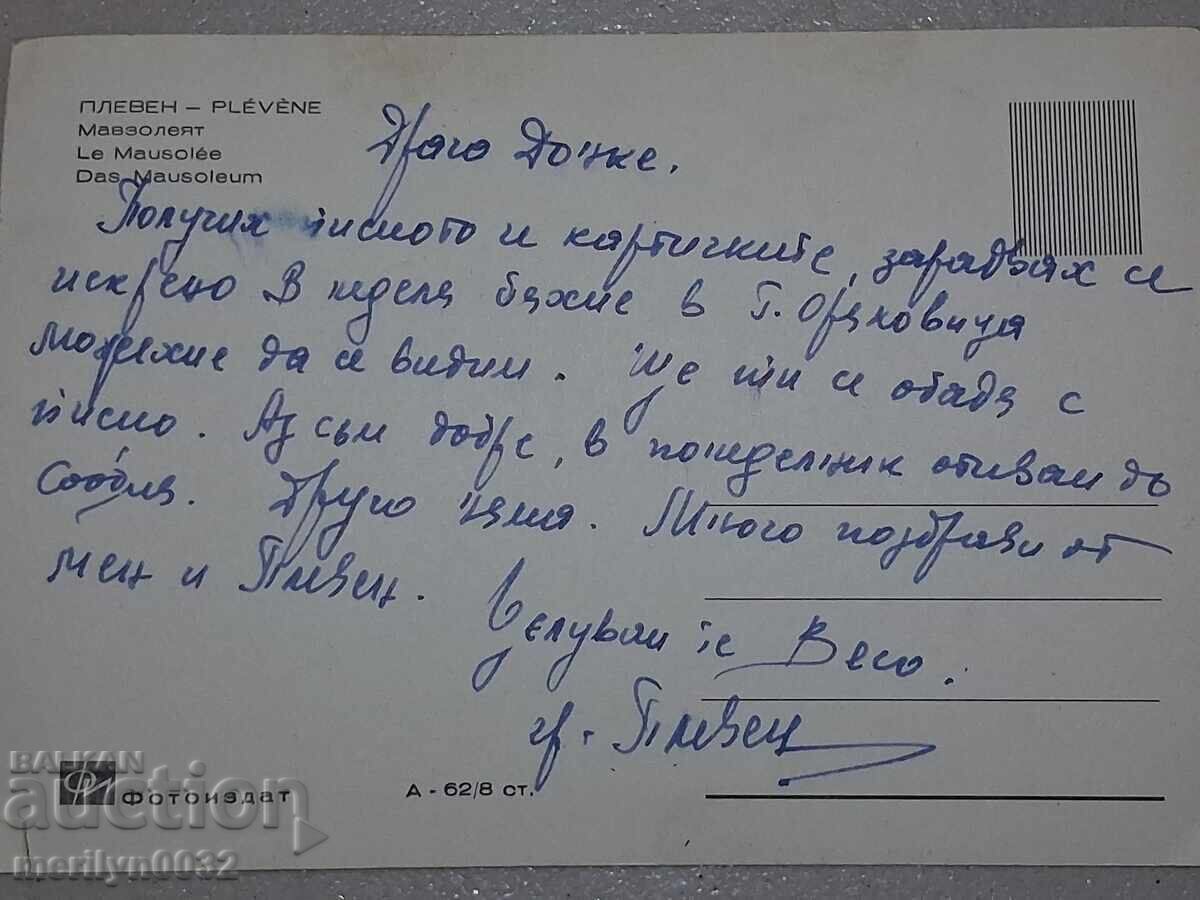 ПЛЕВЕН – PLÉVÈNE
Мавзолеят
Le Mausolée
Das Mausoleum
Драга Донке.
Получих писмото и картичките, зарадвах се
искрено В неделя бяхме в Г. Оряховица
можехме да се видим. Ще ти се обадя с
писмо. Аз съм добре, в понеделник отивам до
София. Друго няма. Много поздрави от
мен и Плевен.
Целувам те Весо.
гр. Плевен
Фотоиздат
А – 62/8 ст.
БАЛКАН
auction
merilyn0032